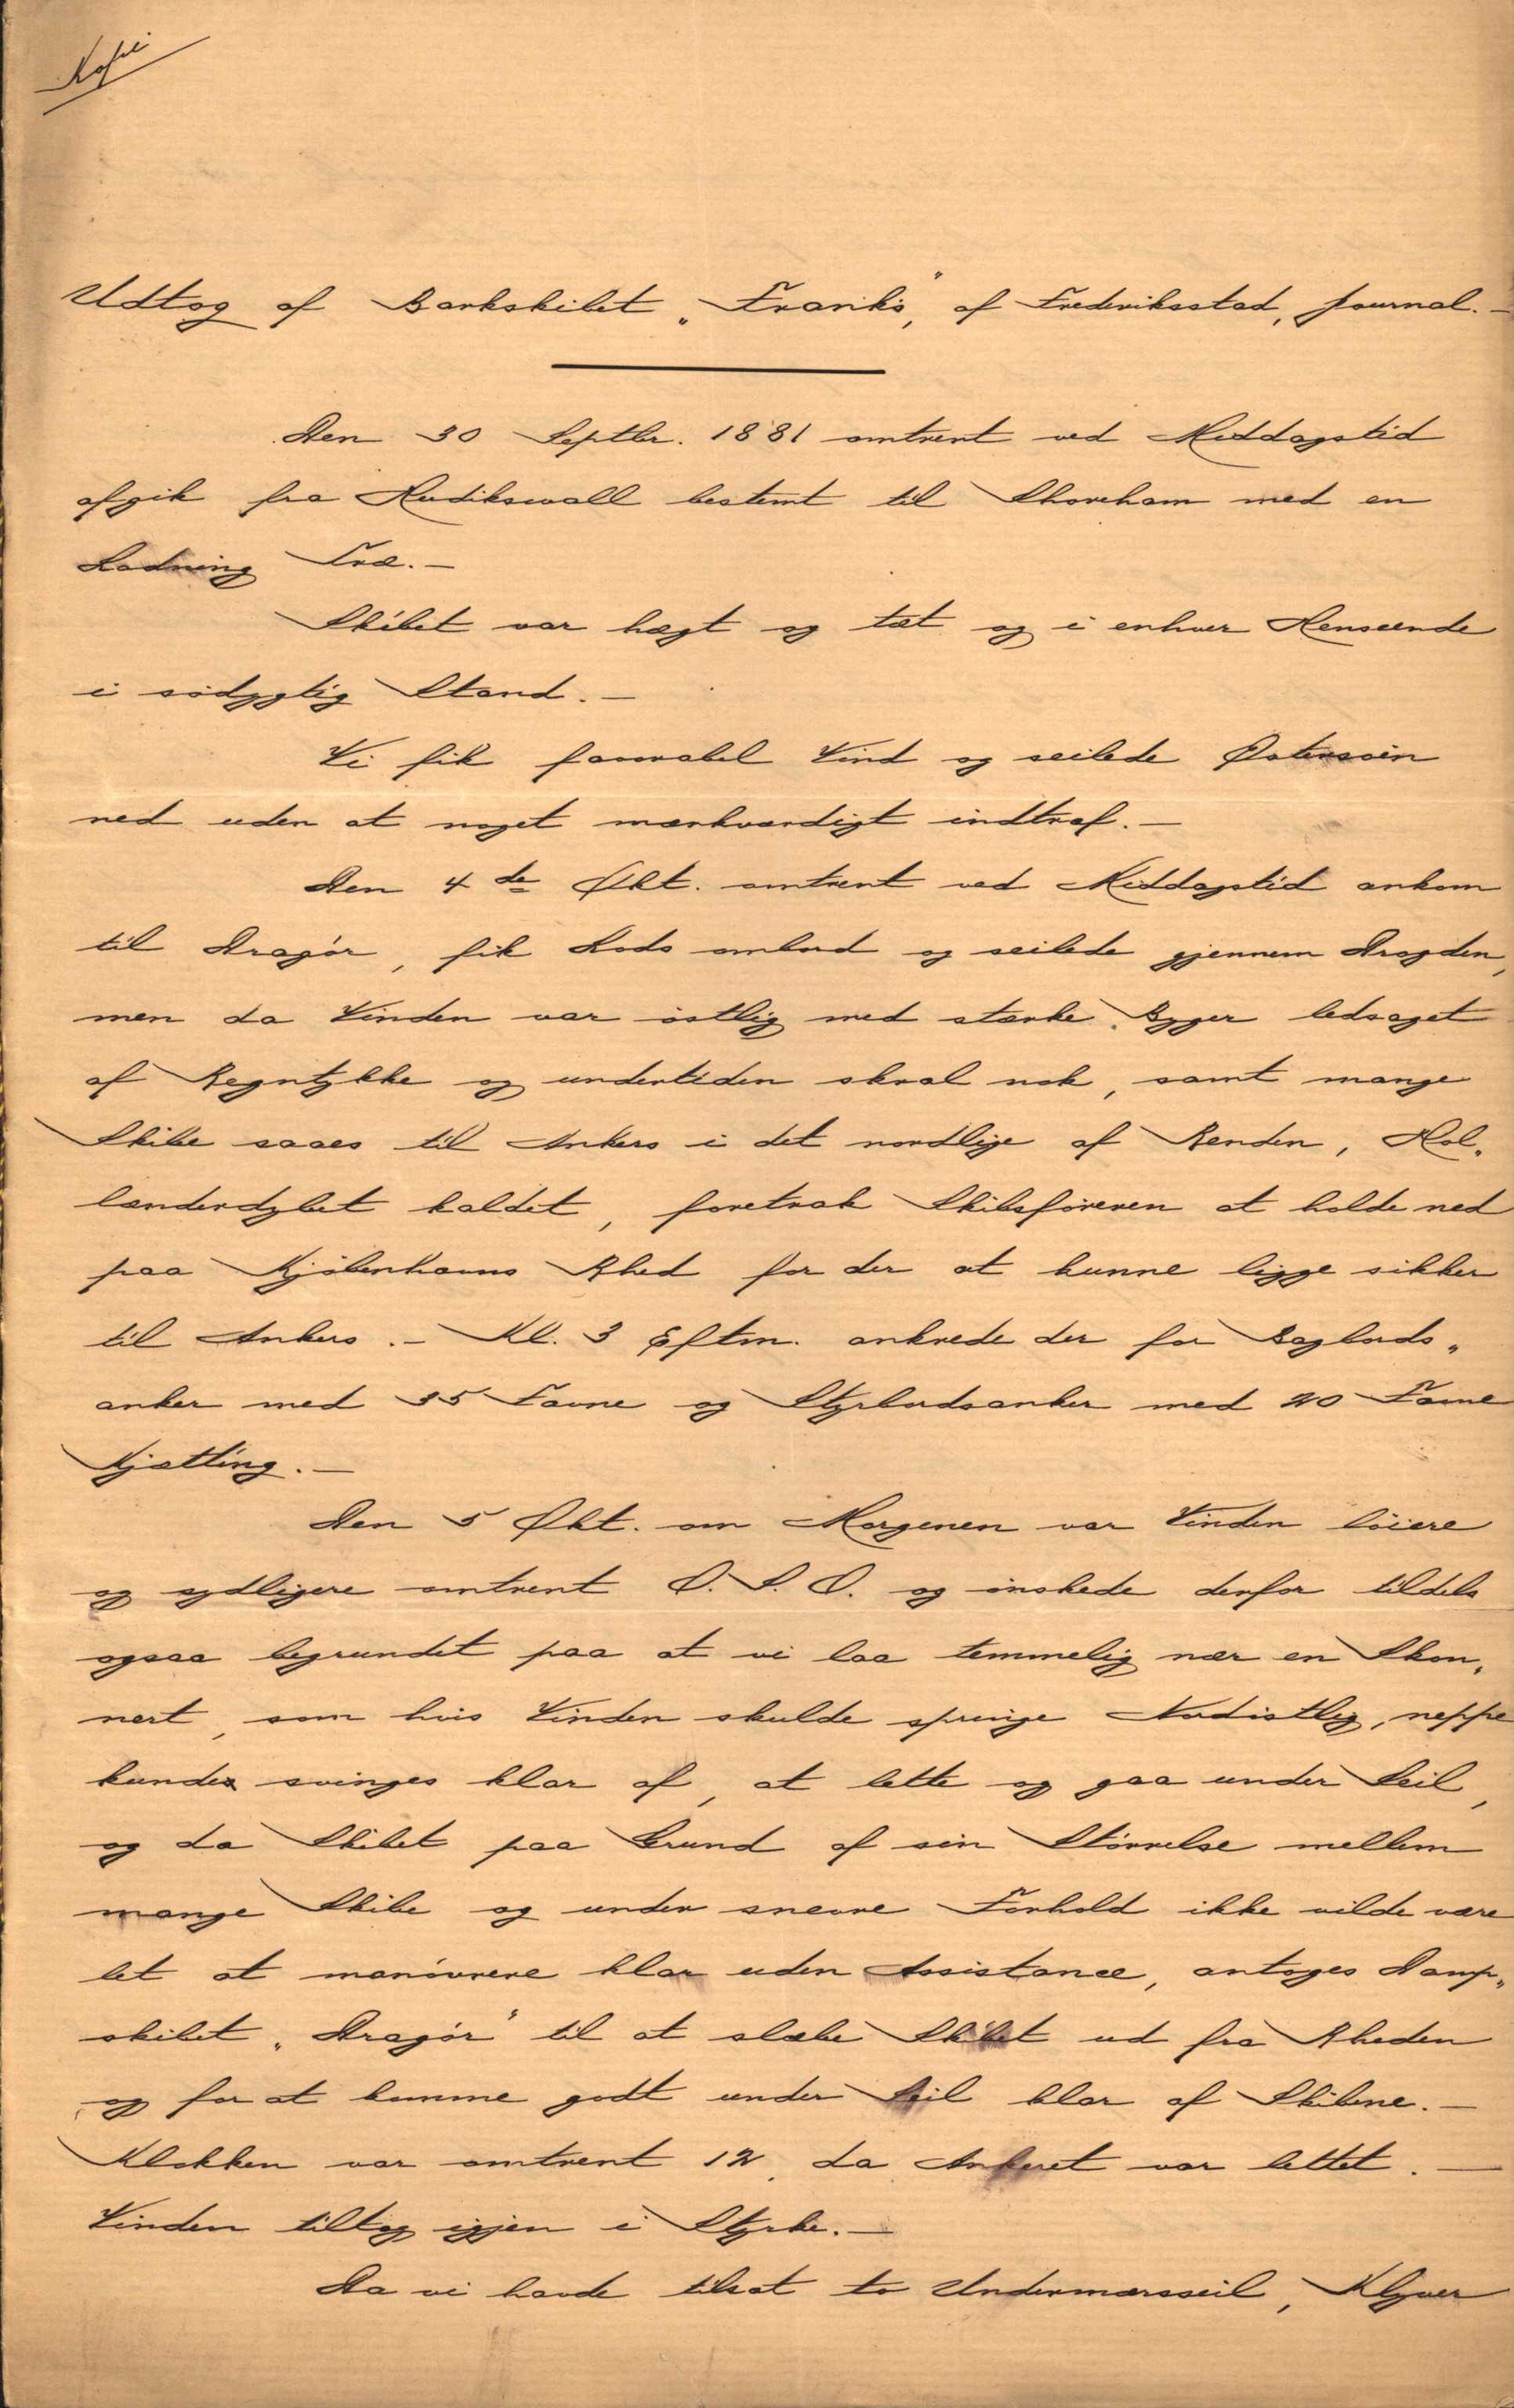 Kopi
Udtog af Barkskibet „Frank's", af Frederiksstad, Journal.—
Den 30 Septbr. 1881 omtrent ved Middagstid
afgik fra Hudikswall bestemt til Shoreham med en
Ladning Træ.—
Skibet var lægt og tæt og i enhver Henseende
i sødygtig Stand.—
Vi fik favorabel Vind og seilede Østersøen
ned uden at noget mærkværdigt indtraf.—
Den 4de Okt. omtrent ved Middagstid ankom
til Dragør, fik Lods ombord og seilede gjennem Drogden,
men da Vinden var østlig med stærke Byger ledsaget
af Regntykke og undertiden skral nok, samt mange
Skibe saaes til Ankers i det nordlige af Renden, Hol„
lænderdybet kaldet, foretrak Skibsføreren at holde ned
paa Kjøbenhavns Rhed for der at kunne ligge sikker
til Ankers.— Kl. 3 Eftm. ankrede der for Bagbords„
anker med 35 Favne og Styrbordsanker med 20 Favne
Kjætting.—
Den 5 Okt. om Morgenen var Vinden løiere
og sydligere omtrent O.S.O. og ønskede derfor tildels
ogsaa begrundet paa at vi laa temmelig nær en Skon„
nert, som hvis Vinden skulde springe Nordøstlig, neppe
kunde svinges klar af, at lette og gaa under Seil,
og da Skibet paa Grund af sin Størrelse mellem
mange Skibe og under snevre Forhold ikke vilde være
let at manøvrere klar uden Assistance, antoges Damp„
skibet „Dragør" til at slæbe Skibet ud fra Rheden
og for at komme godt under Seil klar af Skibene.—
Klokken var omtrent 12, da Ankeret var lettet.—
Vinden tiltog igjen i Styrke.—
Da vi havde tilsat to Undermærsseil, Klyver